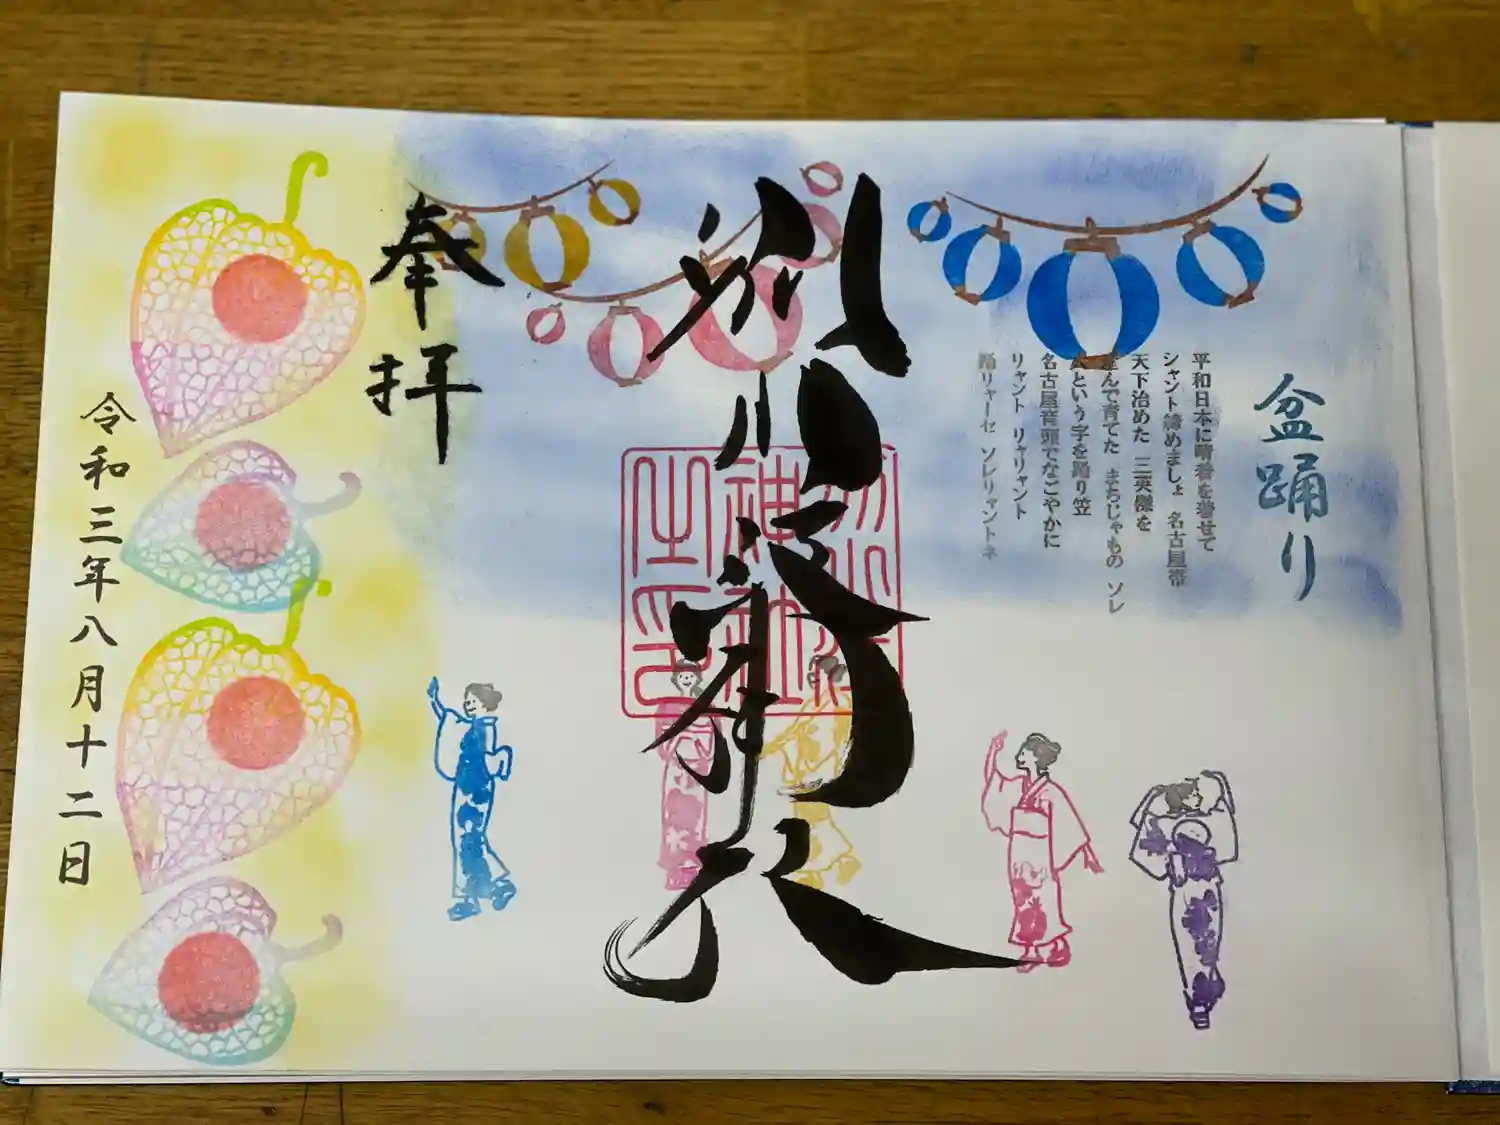 盆踊り
平和日本に晴着を着せて
シャント締めましょ 名古屋帯
天下治めた 三英傑を
産んで育てた まちじゃもの ソレ
八という字を踊り笠
名古屋音頭でなごやかに
リャント リャリャント
踊リャーセ ソレリャントネ
別小江神社
別小江
神社
之印
奉拝
令和三年八月十二日